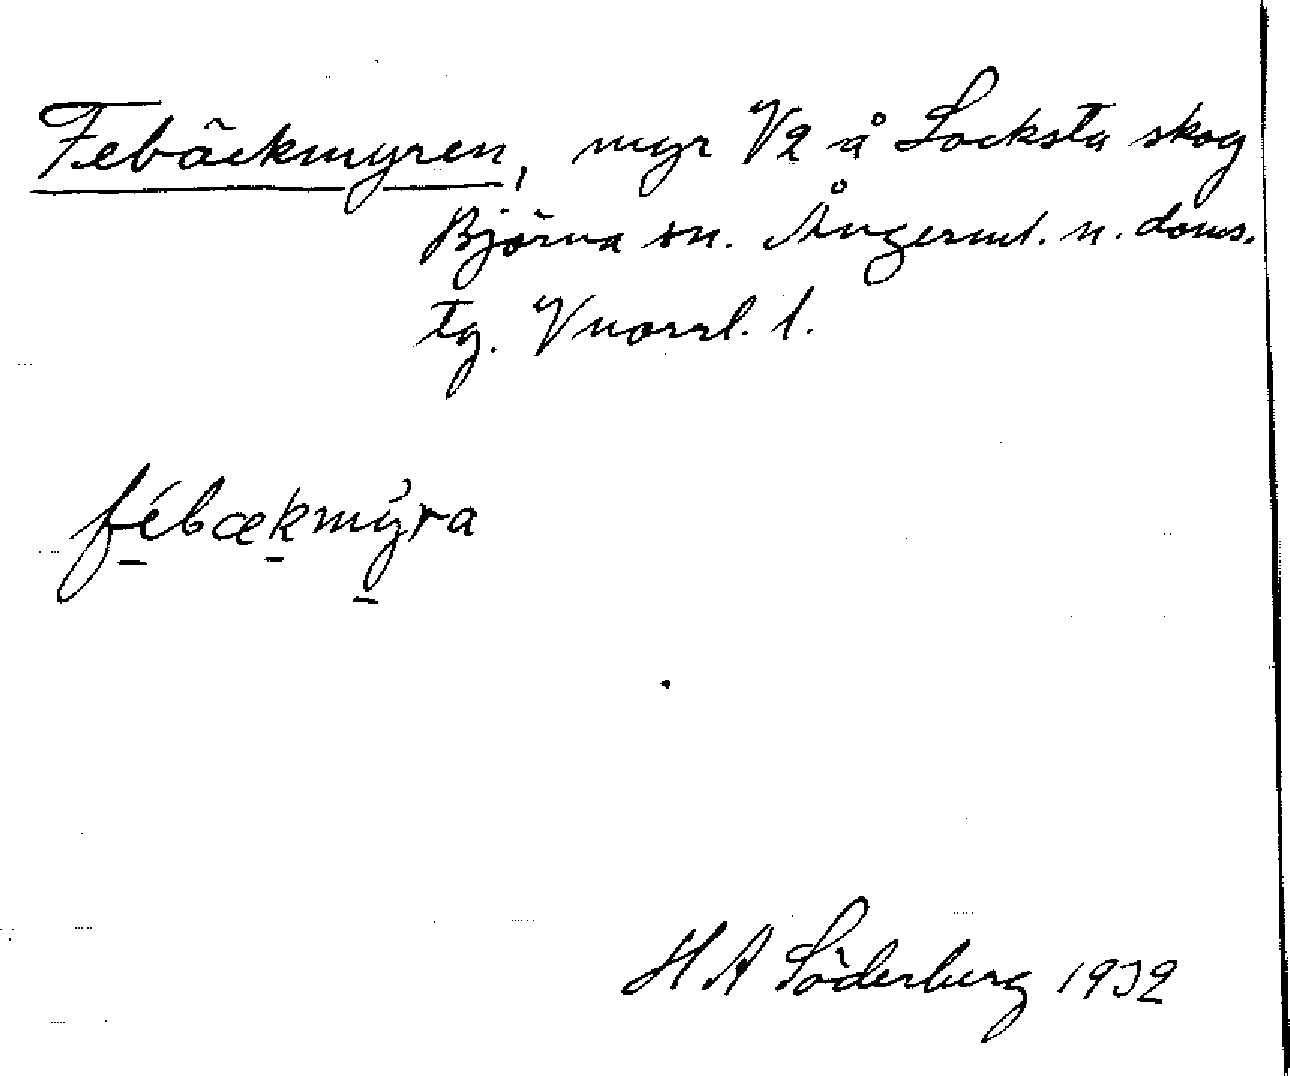 Febäckmyren, myr V2 å Locksta skog
Björna sn. Ångerml. n. doms.
tg. Vnorrl. l.
fébækmy̌ra
H A Söderberg 1932